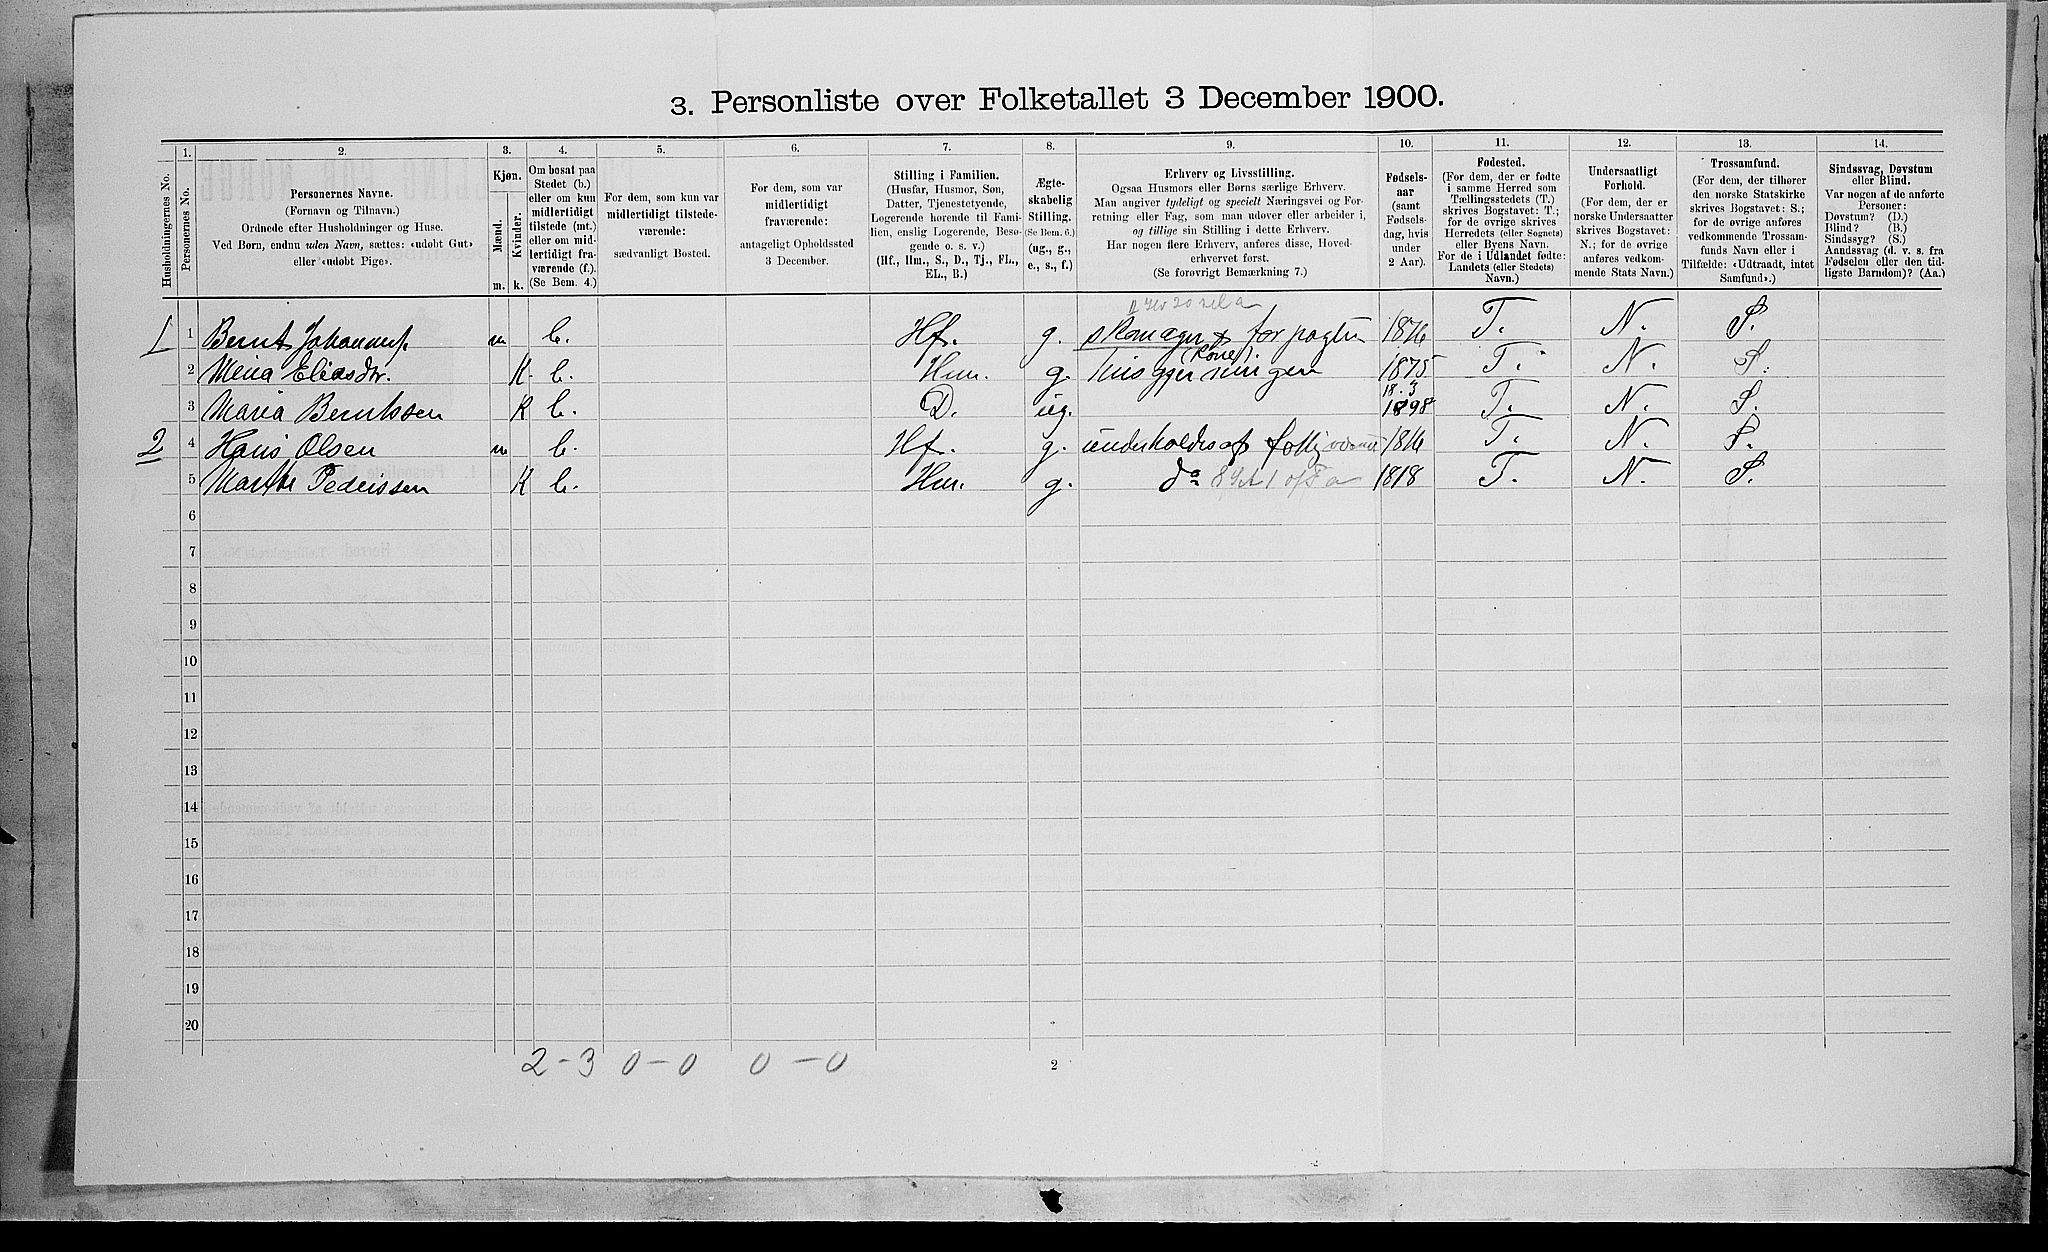 3. Personliste over Folketallet 3 December 1900.
Husholdningernes No.
1.
Personernes No.
2.
Personernes Navne.
(Fornavn og Tilnavn.)
Ordnede efter Husholdninger og Huse.
Ved Børn, endnu uden Navn, sættes: «udøbt Gut»
eller «udøbt Pige».
3.
Kjøn.
Mænd.
Kvinder.
m.
k.
4.
Om bosat paa
Stedet (b.)
eller om kun
midlertidigt
tilstede (mt.)
eller om mid-
lertidigt fra-
værende (f.).
(Se Bem. 4.)
5.
For dem, som kun var
midlertidigt tilstede-
værende:
sædvanligt Bosted.
6.
For dem, som var
midlertidigt
fraværende:
antageligt Opholdssted
3 December.
7.
Stilling i Familien.
(Husfar, Husmor, Søn,
Datter, Tjenestetyende,
Logerende hørende til Fami-
lien, enslig Logerende, Besø-
gende o. s. v.)
(Hf., Hm., S., D., Tj., FL.,
EL., B.)
8.
Ægte-
skabelig
Stilling.
(Se Bem. 6.)
(ug., g.,
e., s., f.)
9.
Erhverv og Livsstilling.
Ogsaa Husmors eller Børns særlige Erhverv.
Man angiver tydeligt og specielt Næringsvei og For-
retning eller Fag, som man udøver eller arbeider i,
og tillige sin Stilling i dette Erhverv.
Har nogen flere Erhverv, anføres disse, Hoved-
erhvervet først.
(Se forøvrigt Bemærkning 7.)
10.
Fødsels-
aar
(samt
Fødsels-
dag, hvis
under
2 Aar).
11.
Fødested.
(For dem, der er fødte
i samme Herred som
Tællingsstedets (T.)
skrives Bogstavet: T.;
for de øvrige skrives
Herredets (eller Sognets)
eller Byens Navn.
For de i Udlandet fødte:
Landets (eller Stedets)
Navn.)
12.
Undersaatligt
Forhold.
(For dem, der er
norske Undersaatter
skrives Bogstavet:
N.; for de øvrige
anføres vedkom-
mende Stats Navn.)
13.
Trossamfund.
(For dem, der tilhører
den norske Statskirke
skrives Bogstavet: S.;
for de øvrige anføres
vedkommende Trossam-
funds Navn eller i
Tilfælde: «Udtraadt, intet
Samfund».)
14.
Sindssvag, Døvstum
eller Blind.
Var nogen af de anførte
Personer:
Døvstum? (D.)
Blind? (B.)
Sindssyg? (S.)
Aandssvag (d. v. s. fra
Fødselen eller den tid-
ligste Barndom)? (Aa.)
1 1 Bernt Johannes. m b. Hf. g. skomager forpagter 1876 T. N. S.
2 Mina Eliasdr. K. b. Hm. g. (Kone) 1875 T. N. S.
3 Maria Berntssen K b. D. ug. 18.3 1898 T. N. S.
2 4 Hans Olsen m b. Hf. g. underholdes af 1816 T. N. S.
5 Marthe Pederssen K b. Hm. g. do 1818 T. N. S.
6
7
8
9
10
11
12
13
14
15
16
17
18
19
20
2-3 0-0 0-0
2